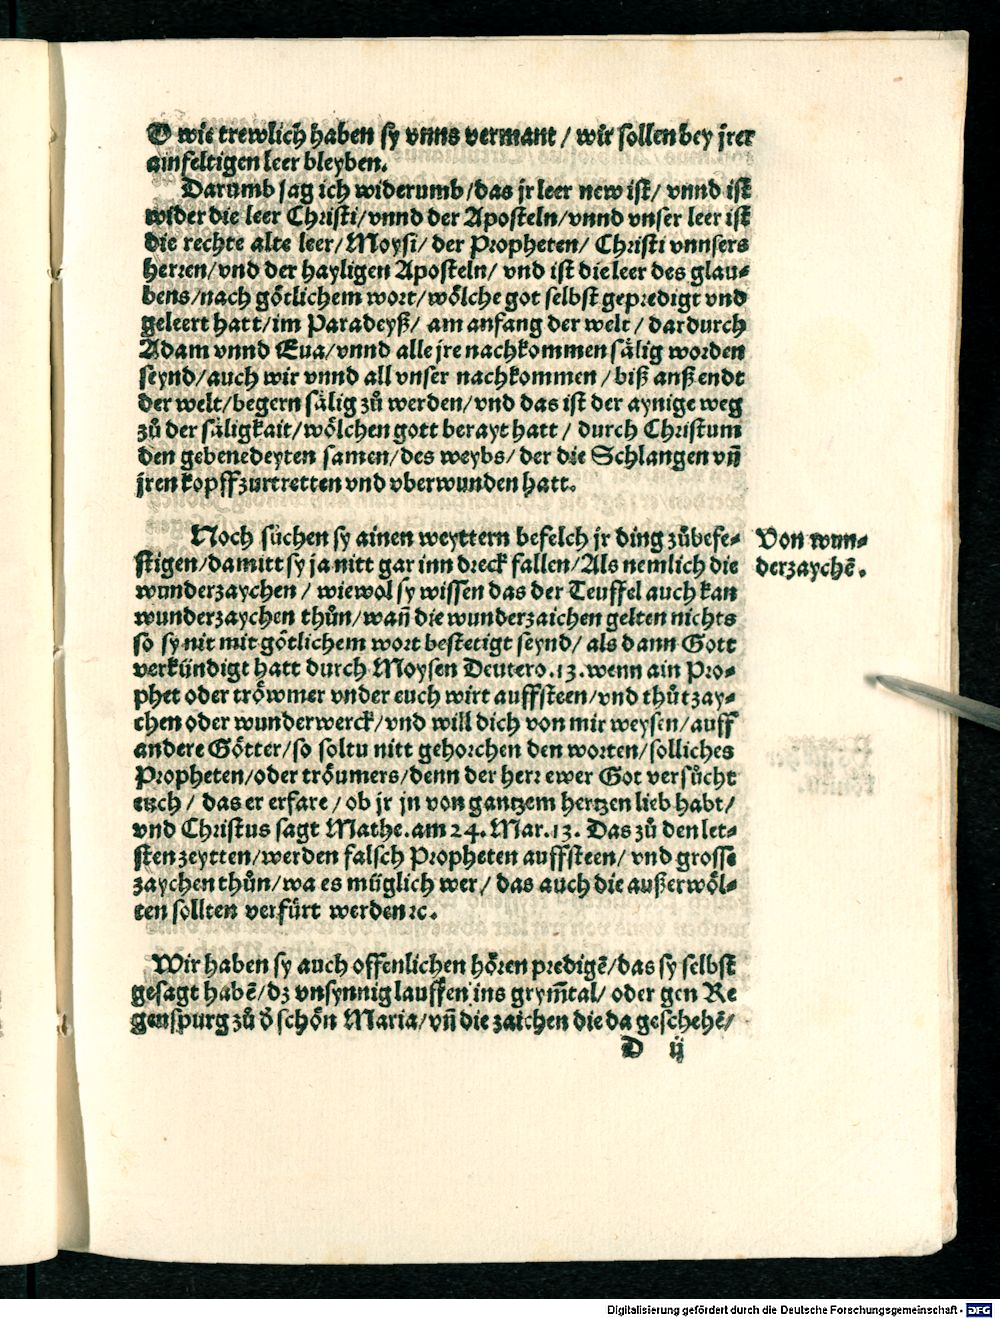 O wie trewlich haben sy vnns vermant / wir sollen bey jrer
ainfeltigen leer bleyben.
Darumb sag ich widerumb/das jr leer new ist/ vnnd ist
wider die leer Christi/vnnd der Aposteln/vnnd vnser leer ist
die rechte alte leer/Moysi/ der Propheten/ Christi vnnsers
herren/vnd der hayligen Aposteln/ vnd ist die leer des glau-
bens/nach götlichem wort/wölche got selbst gepredigt vnd
geleert hatt/im Paradeyß/ am anfang der welt / dardurch
Adam vnnd Eua/vnnd alle jre nachkommen sälig worden
seynd/auch wir vnnd all vnser nachkommen /biß anß endt
der welt/begern sälig zů werden/vnd das ist der aynige weg
zů der säligkait/wölchen gott berayt hatt / durch Christum
den gebenedeyten samen/des weybs/ der die Schlangen vñ
jren kopff zurtretten vnd vberwunden hatt.
Noch sůchen sy ainen weyttern befelch jr ding zůbefe-
stigen/damitt sy ja nitt gar inn dreck fallen/Als nemlich die
wunderzaychen / wiewol sy wissen das der Teuffel auch kan
wunderzaychen thůn/wañ die wunderzaichen gelten nichts
so sy nit mit götlichem wort bestetigt seynd/ als dann Gott
verkündigt hatt durch Moysen Deutero.13.wenn ain Pro-
phet oder tröwmer vnder euch wirt auffsteen/vnd thůt zay-
chen oder wunderwerck/vnd will dich von mir weysen/auff
andere Götter/so soltu nitt gehorchen den worten/solliches
Propheten/oder tröumers/denn der herr ewer Got versůcht
euch / das er erfare / ob jr jn von gantzem hertzen lieb habt/
vnd Christus sagt Mathe.am 24. Mar.13. Das zů den let-
sten zeytten/werden falsch Propheten auffsteen/ vnd grosse
zaychen thůn/wa es müglich wer/ das auch die außerwöl-
ten sollten verfürt werden ꝛc.
Von wun-
derzaychẽ.
Wir haben sy auch offenlichen hören predigẽ/das sy selbst
gesagt habẽ/dz vnsynnig lauffen ins grym̃tal/ oder gen Re
genspurg zů d̕ schön Maria/vñ die zaichen die da geschehẽ/
D ij
Digitalisierung gefördert durch die Deutsche Forschungsgemeinschaft - DFG